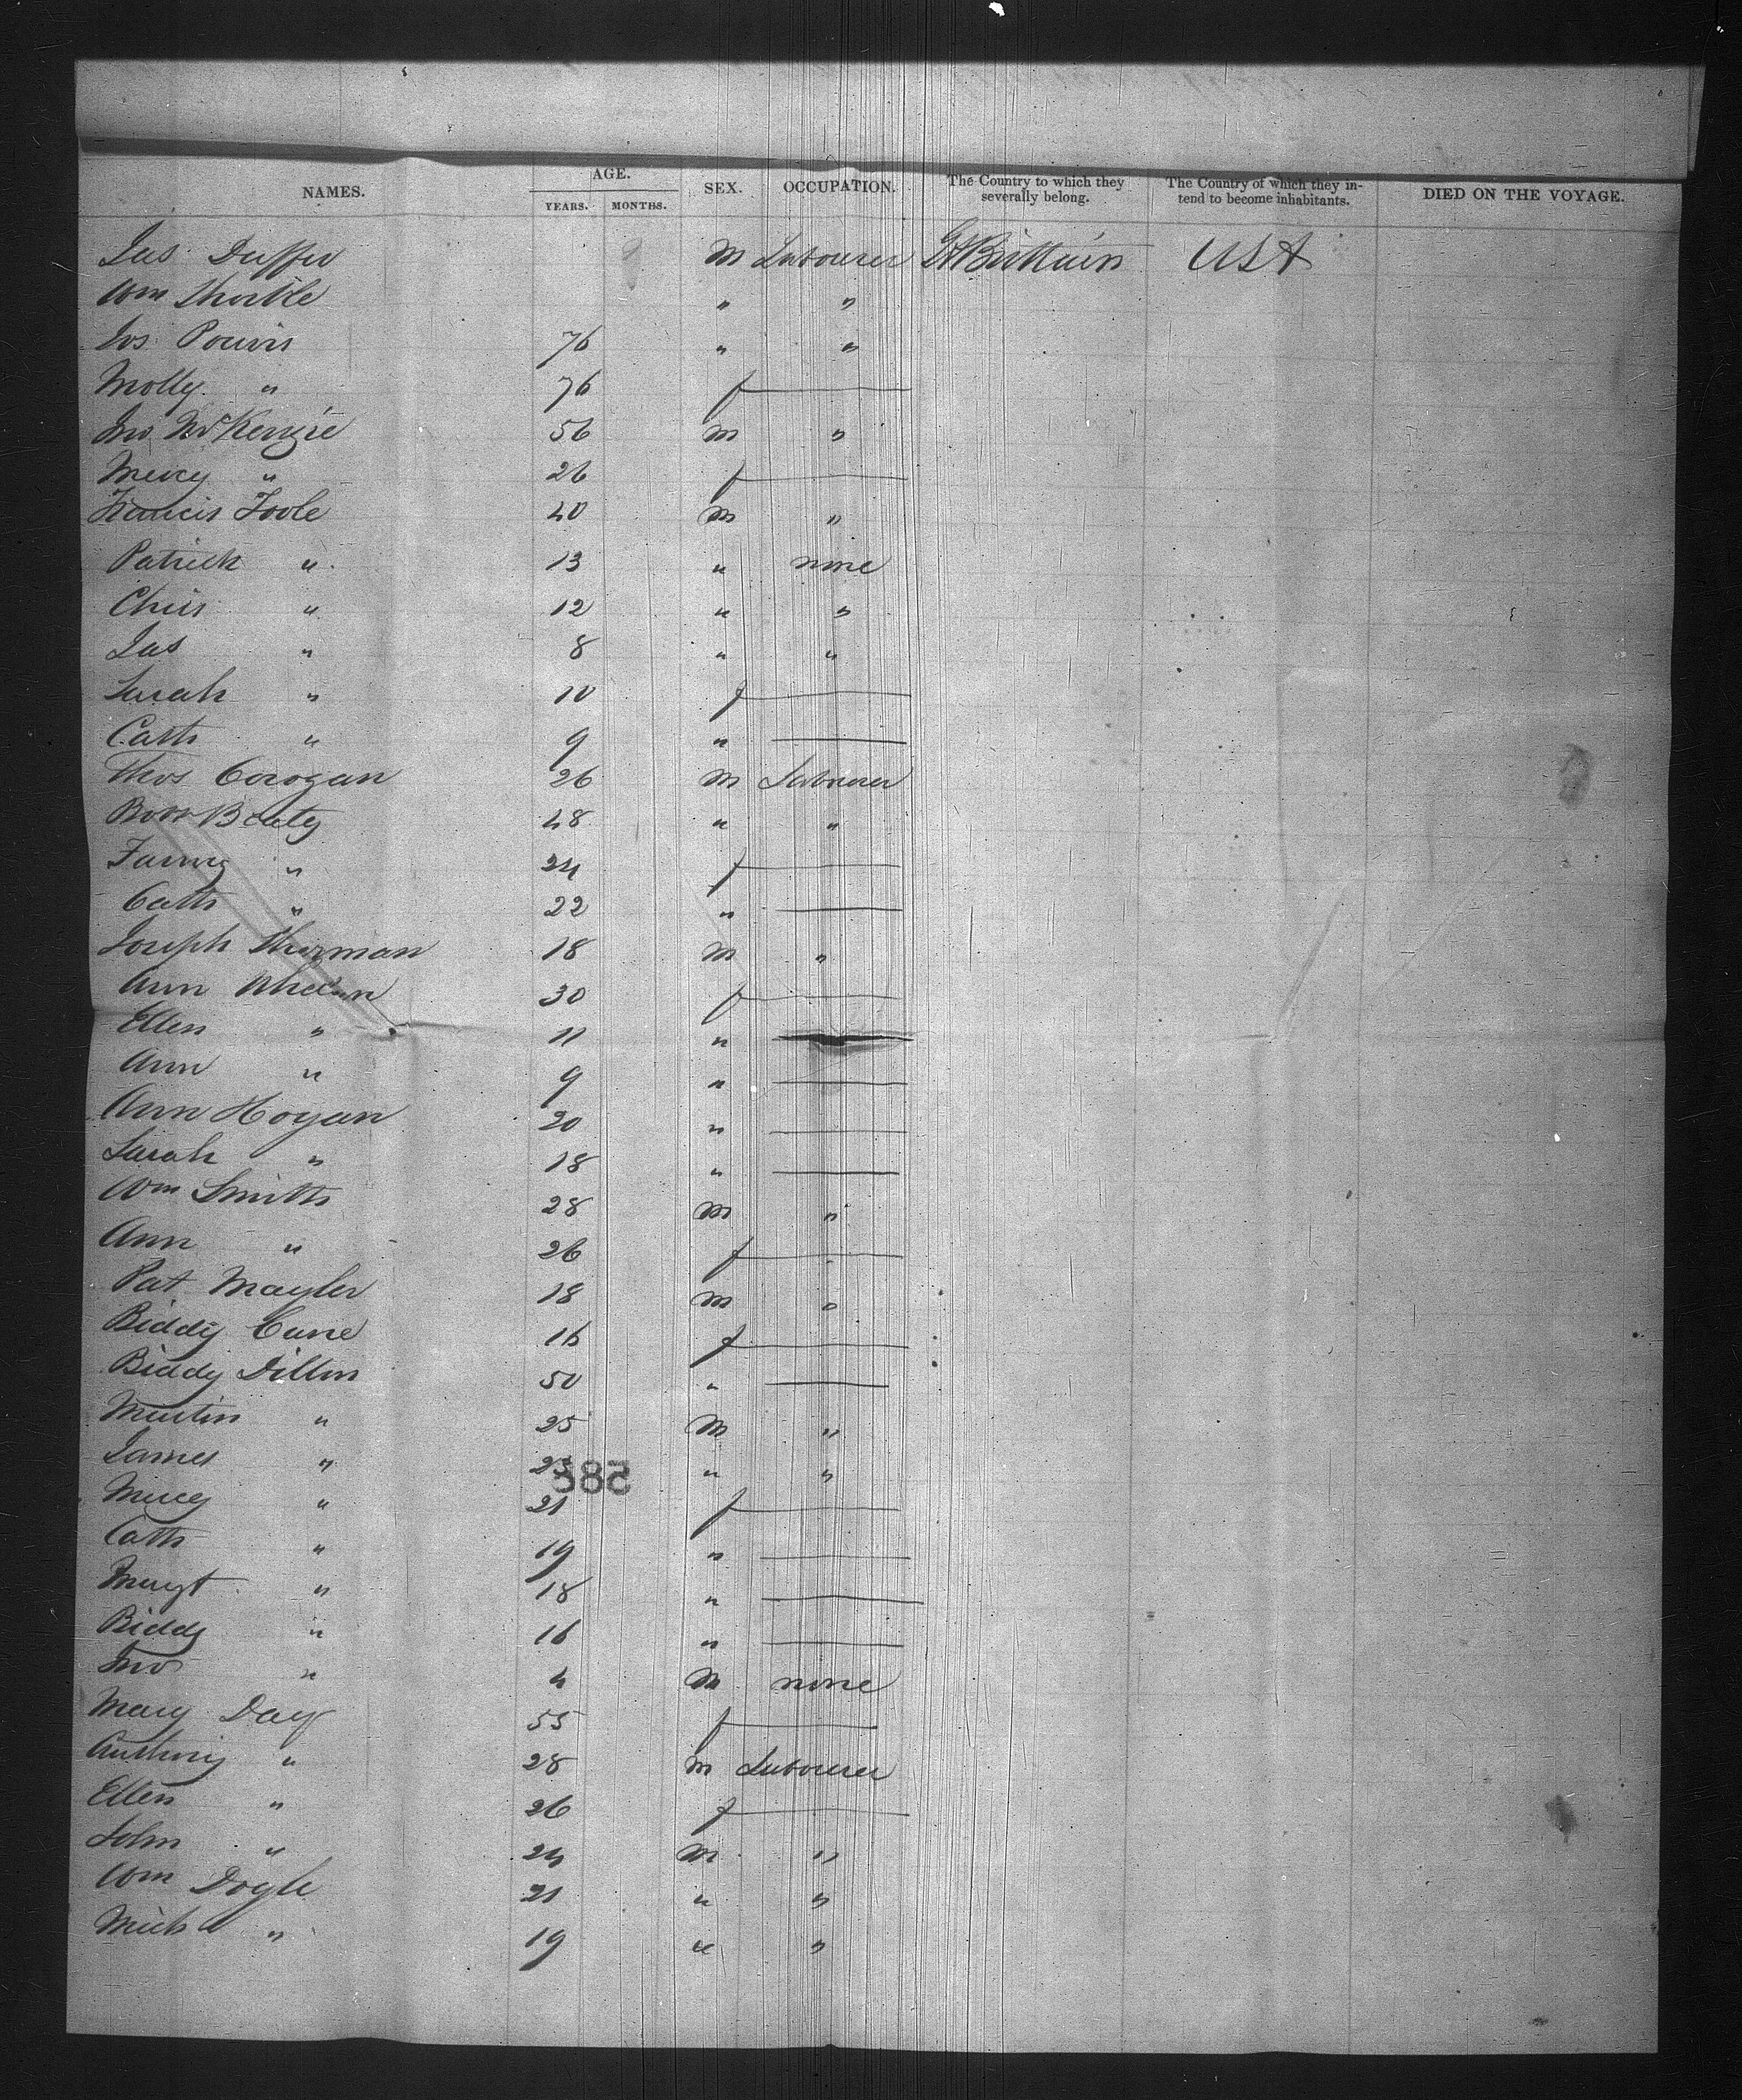 NAMES. AGE. YEARS. MONTHS. SEX. OCCUPATION. The Country to which they severally belong. The Country of which they intend to become inhabitants. DIED ON THE VOYAGE.
Jas Duffy m Labourer Gt Brittain USA
Wm " "
Jos 76 " "
Molly " 76 f
Jno McKenzie 56 m "
Mercy " 26 f
Francis Toole 40 m "
Patrick " 13 " none
Chris " 12 " "
Jas " 8 " "
Sarah " 10 f
Cath " 9 "
Thos Corogan 26 m Labourer
Beaty 48 " "
Fanny " 24 f
Cath " 22 "
Joseph Sherman 18 m "
Ann Whelan 30 f
Ellen " 11 "
Ann " 9 "
Ann Hogan 20 "
Sarah " 18 "
Wm Smith 28 m "
Ann " 26 f
Pat Mayler 18 m "
Biddy Cane 16 f
Biddy Dillon 50 "
Martin " 25 m "
James " 23 " "
" 21 f
Cath " 19 "
Margt " 18 "
Biddy " 16 "
Jno " 4 m none
Mary Day 55 f
Anthony " 28 m Labourer
Ellen " 26 f
John " 24 m "
Wm Doyle 21 " "
Mich " 19 " "